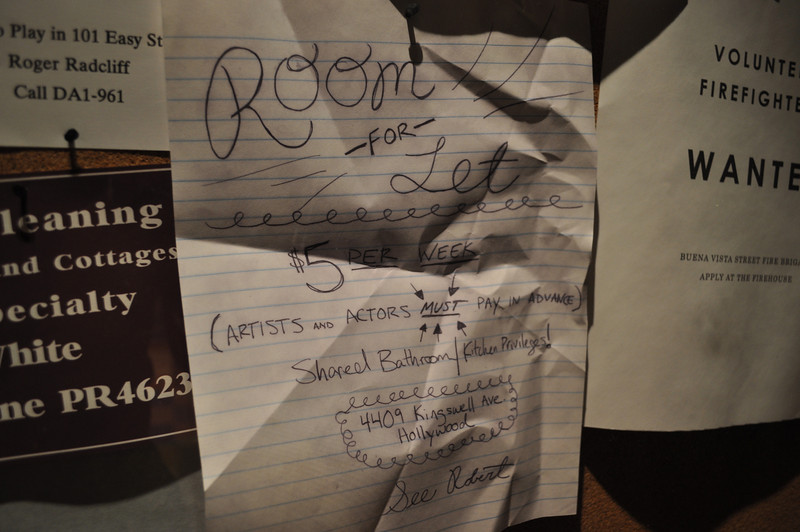 Play in 101 Easy St
Roger Radcliff
Call DA1-961
leaning
nd Cottages
pecialty
hite
ne PR4623
ROOM
-FOR-
Let
$5 PER WEEK
(ARTISTS AND ACTORS MUST PAY IN ADVANCE)
Shared Bathroom/Kitchen Privileges!
4409 Kingswell Ave.
Hollywood
See Robert
VOLUNTE
FIREFIGHTE
WANTE
BUENA VISTA STREET FIRE BRIGA
APPLY AT THE FIREHOUSE